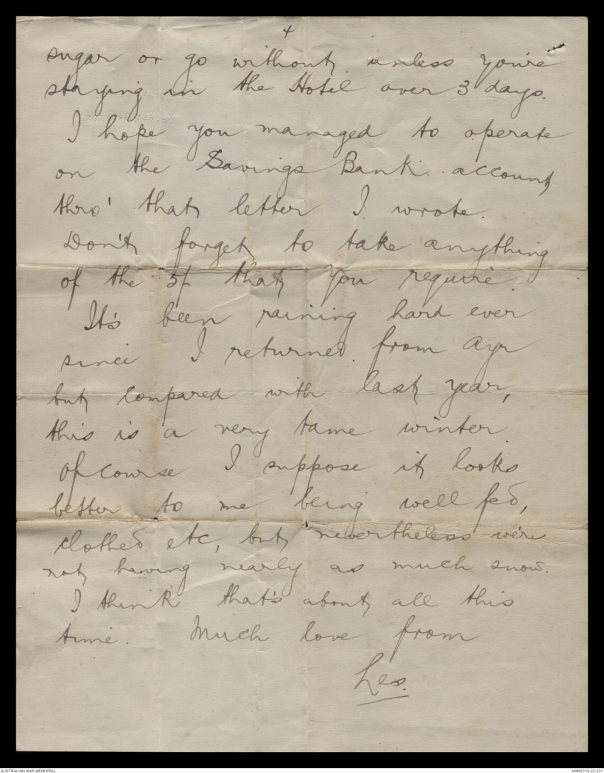 4
sugar or go without, unless you're
staying in the Hotel over 3 days.
I hope you managed to operate
on the Savings Bank account
thro' that letter I wrote.
Don't forget to take anything
of the 5/- that you require.
It's been raining hard ever
since I returned from Ayr
but compared with last year,
this is a very tame winter.
Of course I suppose it looks
better to me being well fed,
clothed etc, but nevertheless we're
not having nearly as much snow.
I think that's about all this
time. Much love from
Les.
AUSTRALIAN WAR MEMORIAL